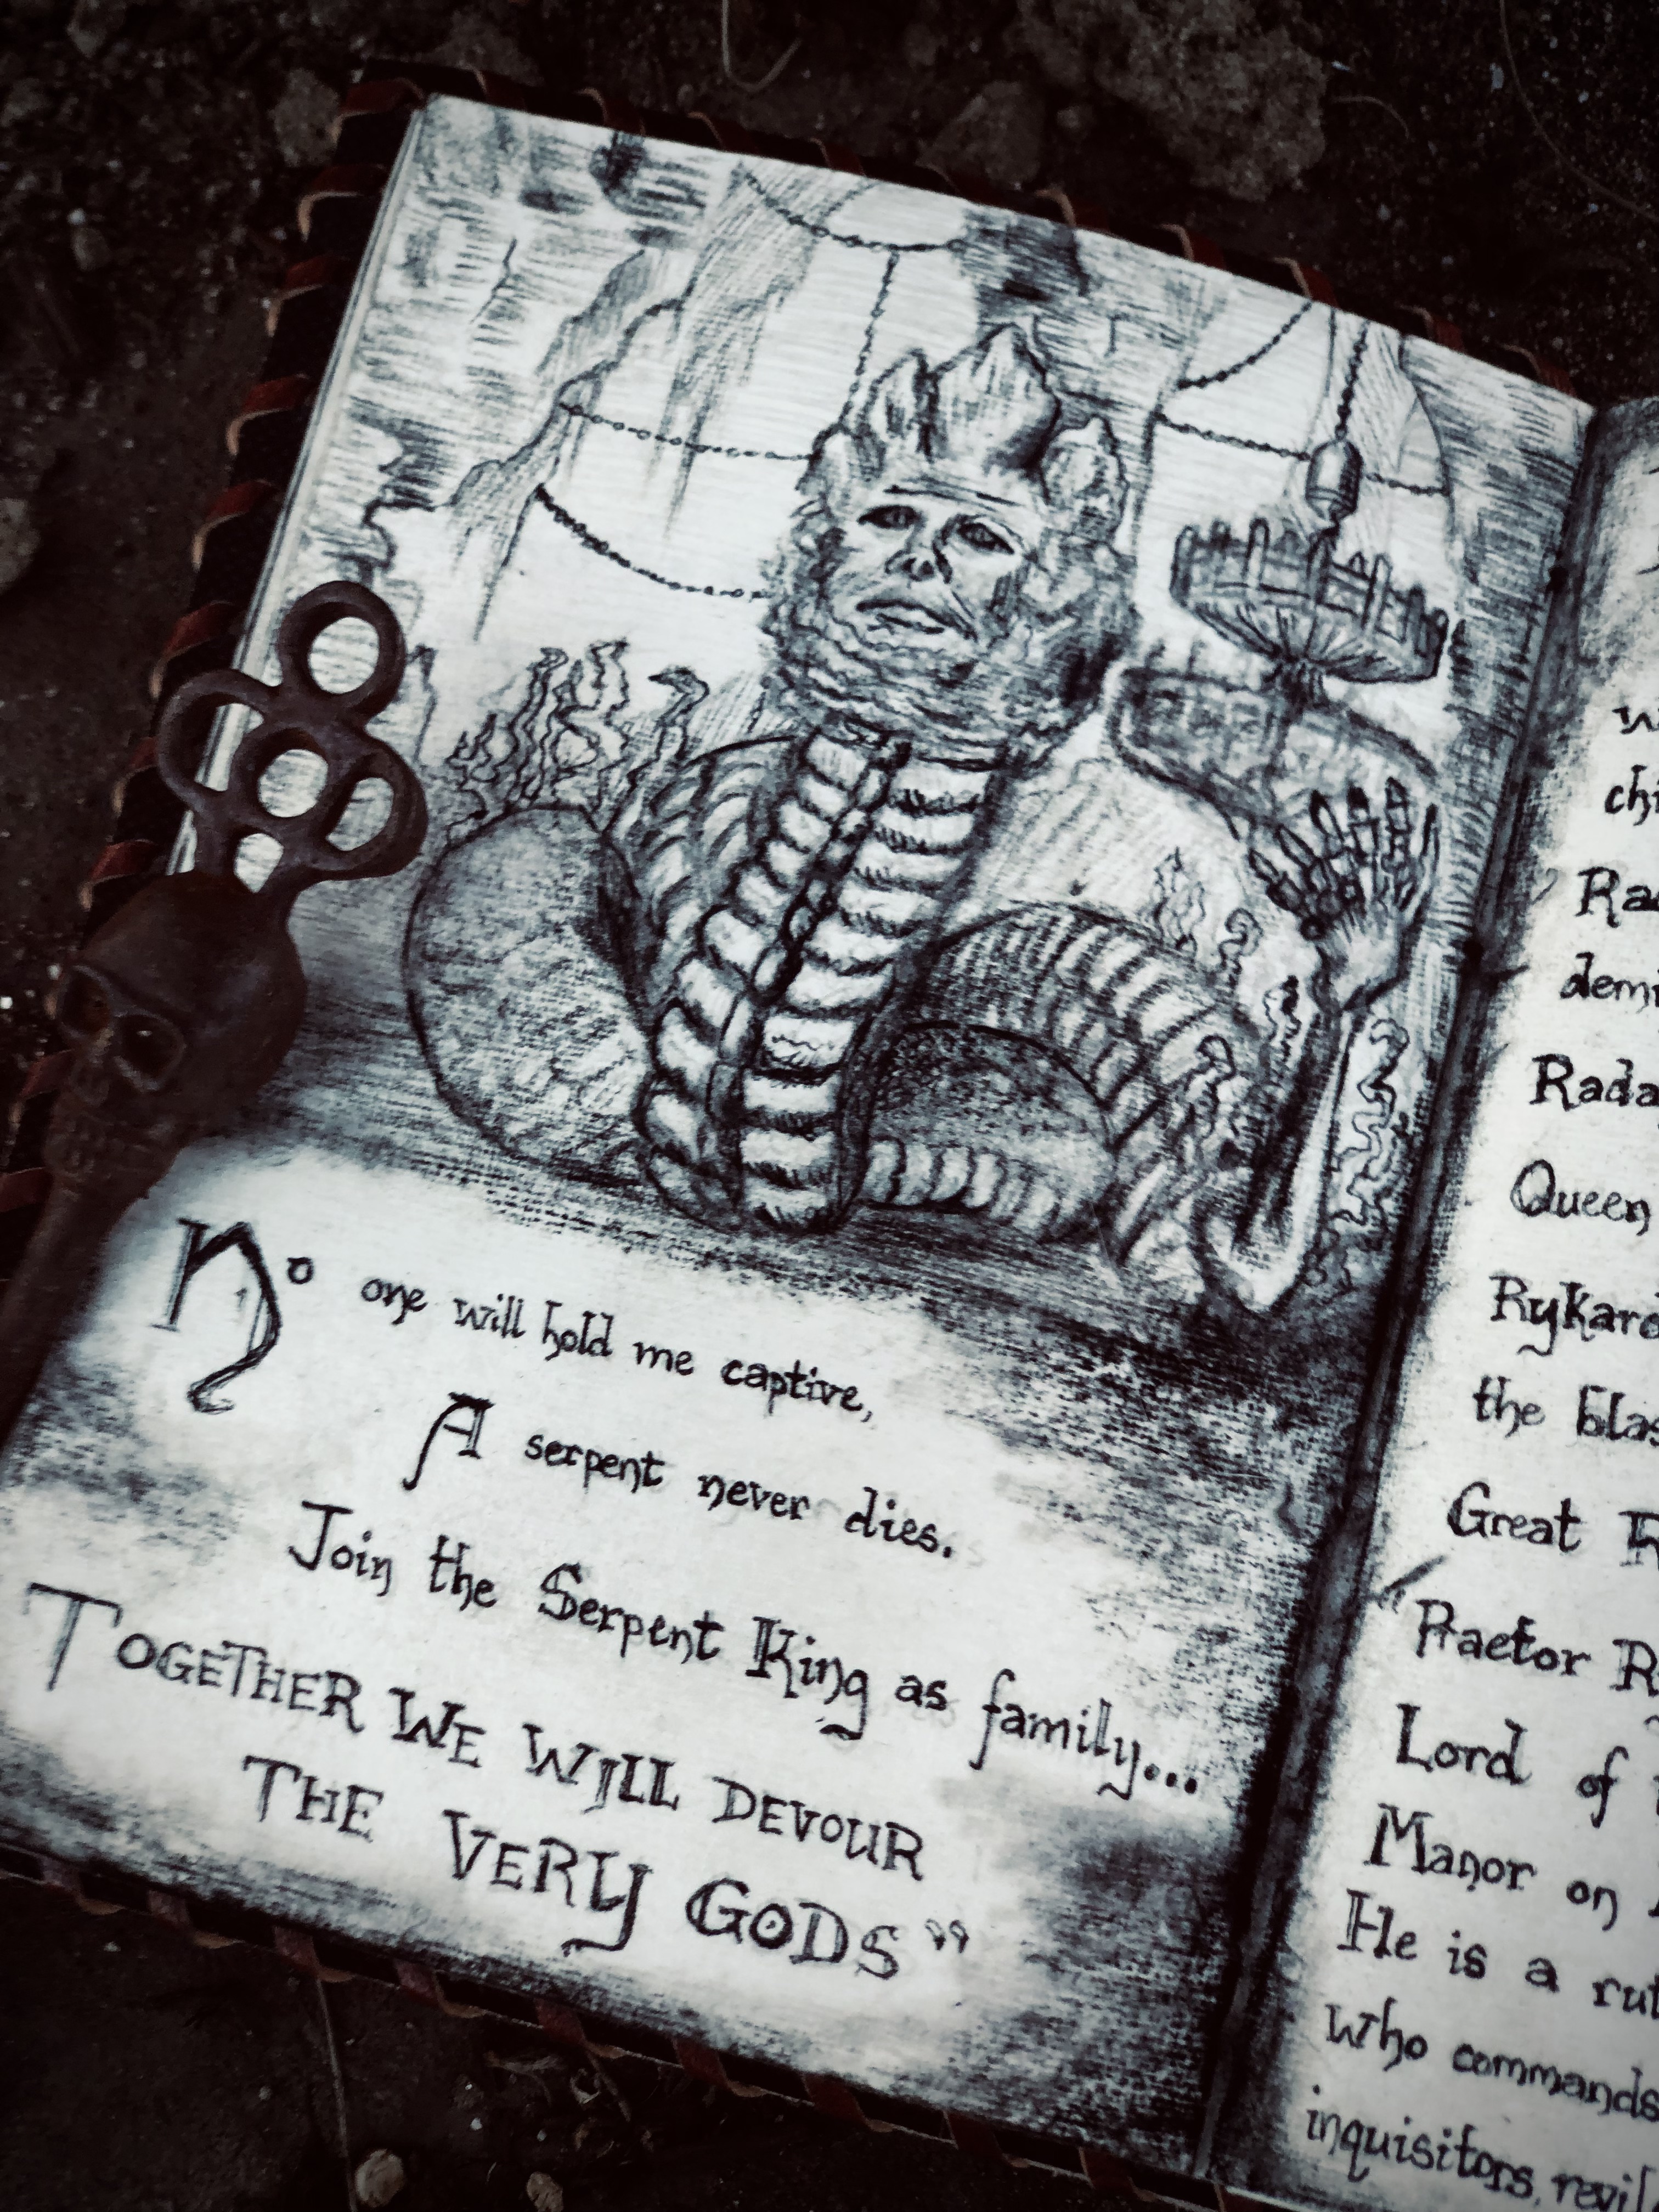 No one will hold me captive,
A serpent never dies.
Join the Serpent King as family...
TOGETHER WE WILL DEVOUR
THE VERY GODS"
Queen
the
Great
"Praetor
Lord of
Manor on
He is a
who commands
inquisitors,